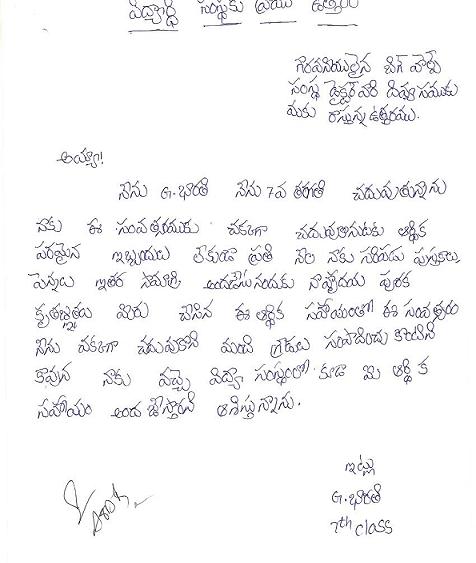 విద్యార్థి సంస్థకు వ్రాయు ఉత్తరం
గౌరవనీయులైన బిగ్ హెల్ప్
సంస్థ డైరెక్టర్ గారి దివ్య సముకు
మకు రాస్తున్న ఉత్తరము.
అయ్యా!
నేను G. భారతి నేను 7వ తరగతి చదువుతున్నాను
నాకు ఈ సంవత్సరమకు చక్కగా చదువుకొనుటకు ఆర్థిక
పరమైన ఇబ్బందులు లేకుండా ప్రతి నెల నాకు సరిపడు పుస్తకాలు
పెన్నులు ఇతర సామాగ్రి అందచేసినందుకు నాహృదయ పూర్వక
కృతజ్ఞతలు మీరు చేసిన ఈ ఆర్థిక సహాయంతో ఈ సంవత్సరం
నేను చక్కగా చదువుకొని మంచి గ్రేడులు సంపాదించు కొంటిని
కావున నాకు వచ్చే విద్యా సంవత్సరంలో కూడా మీ ఆర్థిక
సహాయం అంద జేస్తారని ఆశిస్తున్నాను.
ఇట్లు
G. భారతి
7th class